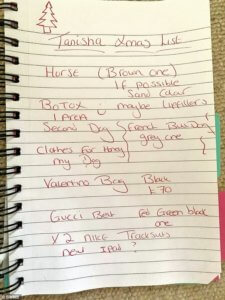 Tanisha Xmas List
Horse (Brown one)
If possible
Sand Colar
Botox :) maybe lipfillers
1 Area
Second Dog { French Bull Dog
grey one
Clothes for Honey
my Dog
Valentino Bag Black
£70
Gucci Belt Red Green black
one
X2 Nike Tracksuits
new Ipad ?